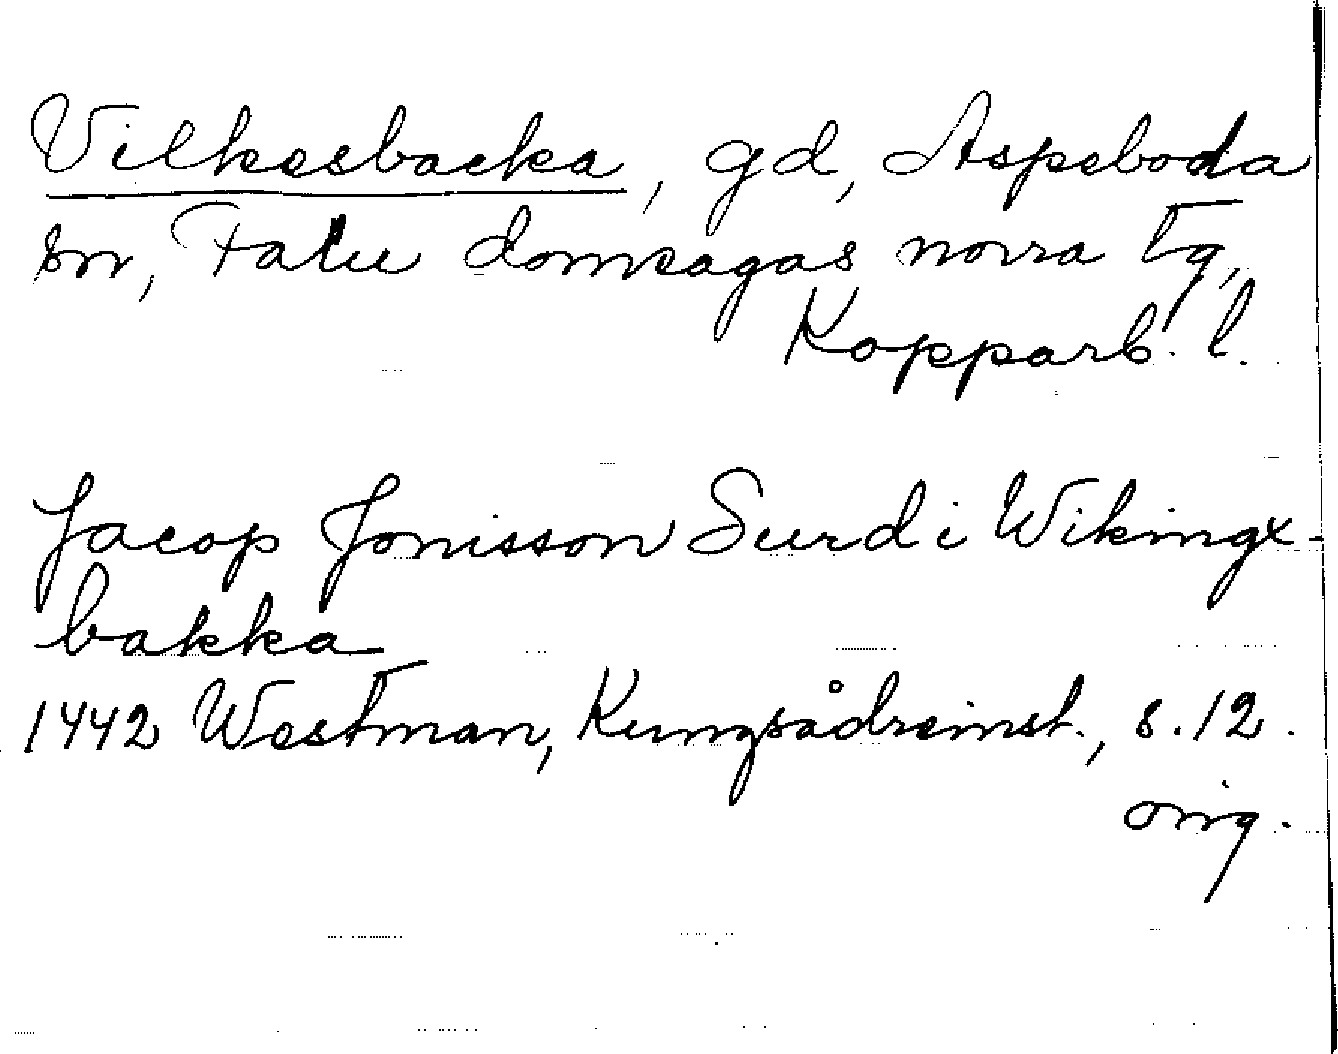 Vilkesbacka, gd, Aspeboda
sn, Falu domsagas norra tg,
Kopparb. l.
Jacop Jonisson Surd i Wikingx-
bakka
1442 Westman, Kungsådreinst., s. 12.
orig.